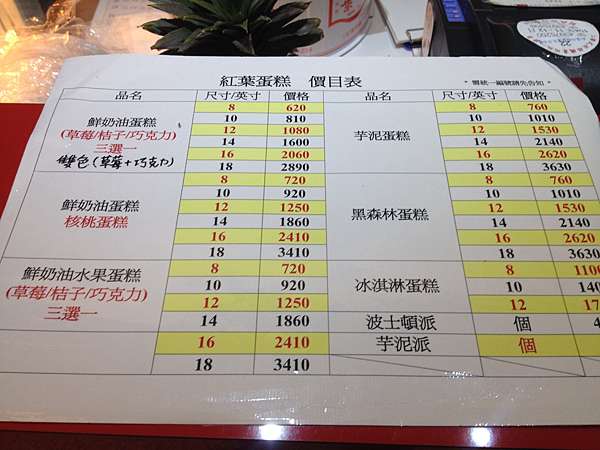 紅葉蛋糕 價目表
* 需統一編號請先告知 *
品名 尺寸/英寸 價格 品名 尺寸/英寸 價格
鮮奶油蛋糕
(草莓/桔子/巧克力)
三選一
雙色(草莓+巧克力)
8 620
10 810
12 1080
14 1600
16 2060
18 2890
鮮奶油蛋糕
核桃蛋糕
8 720
10 920
12 1250
14 1860
16 2410
18 3410
鮮奶油水果蛋糕
(草莓/桔子/巧克力)
三選一
8 720
10 920
12 1250
14 1860
16 2410
18 3410
芋泥蛋糕
8 760
10 1010
12 1530
14 2140
16 2620
18 3630
黑森林蛋糕
8 760
10 1010
12 1530
14 2140
16 2620
18 3630
冰淇淋蛋糕
8 1100
10 140
12 17
波士頓派 個 4
芋泥派 個